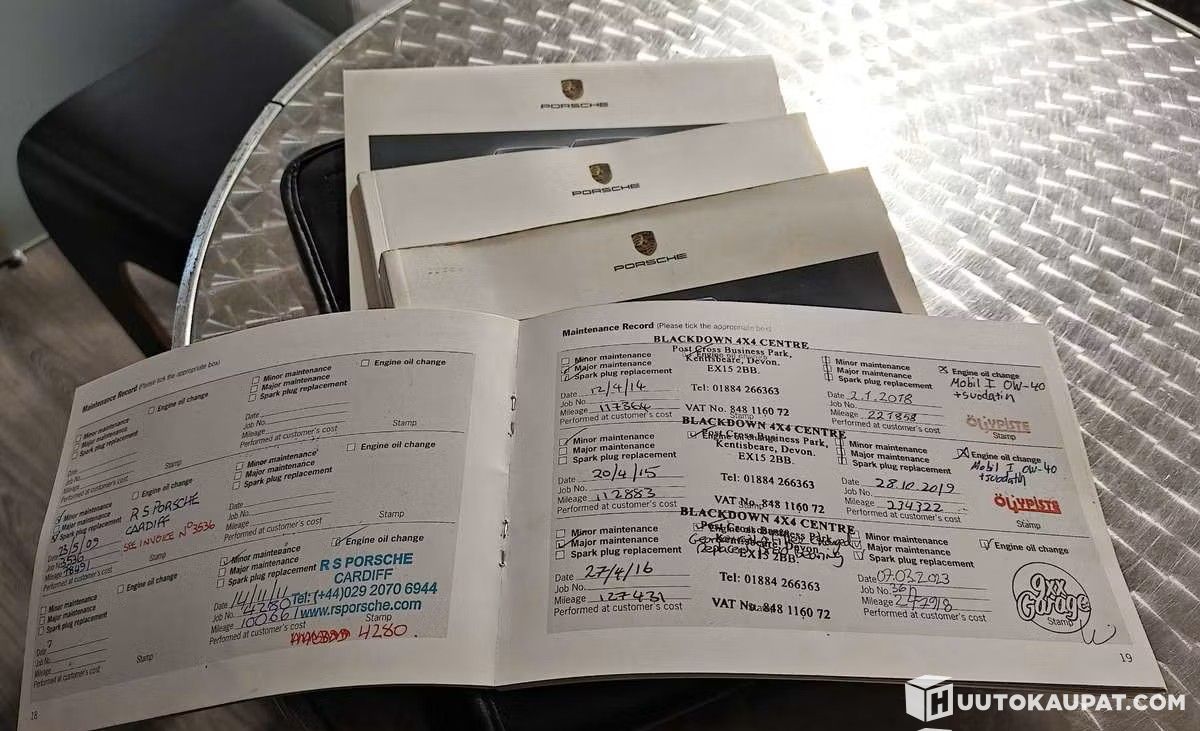 PORSCHE
PORSCHE
PORSCHE
Maintenance Record (Please tick the appropriate box)
Engine oil change
Minor maintenance
Major maintenance
Spark plug replacement
Date
Job No.
Mileage
Performed at customer's cost
Stamp
Engine oil change
Minor maintenance
Major maintenance
Spark plug replacement
R S PORSCHE
CARDIFF
SEE INVOICE Nº3536
Date 23/5/09
Job No.
Mileage
Performed at customer's cost
Engine oil change
Minor maintenance
Major maintenance
Spark plug replacement
Date
Job No.
Mileage
Performed at customer's cost
Stamp
18
Engine oil change
Minor maintenance
Major maintenance
Spark plug replacement
Date
Job No.
Mileage
Performed at customer's cost
Stamp
Engine oil change
Minor maintenance
Major maintenance
Spark plug replacement
Date
Job No.
Mileage
Performed at customer's cost
Stamp
Engine oil change
Minor maintenance
Major maintenance
Spark plug replacement
R S PORSCHE
CARDIFF
Tel: (+44)029 2070 6944
www.rsporsche.com
Date
Job No. 4280
Mileage
Performed at customer's cost
Stamp
4280
Maintenance Record (Please tick the appropriate box)
BLACKDOWN 4X4 CENTRE
Post Cross Business Park,
Kentisbeare, Devon.
EX15 2BB.
Minor maintenance
Major maintenance
Spark plug replacement
Date 12/4/14
Tel: 01884 266363
Job No.
Mileage 117364
VAT No. 848 1160 72
Performed at customer's cost
Stamp
BLACKDOWN 4X4 CENTRE
Post Cross Business Park,
Kentisbeare, Devon.
EX15 2BB.
Minor maintenance
Major maintenance
Spark plug replacement
Date 20/4/15
Tel: 01884 266363
Job No.
Mileage 112883
VAT No. 848 1160 72
Performed at customer's cost
BLACKDOWN 4X4 CENTRE
Minor maintenance
Major maintenance
Spark plug replacement
EX15 2BB.
Date 27/4/16
Tel: 01884 266363
Job No.
Mileage 127431
VAT No. 848 1160 72
Performed at customer's cost
Minor maintenance
Major maintenance
Spark plug replacement
Engine oil change
Mobil 1 0W-40
+suodatin
Date 2.1.2018
Job No.
Mileage 221858
Performed at customer's cost
ÖLJYPISTE
Stamp
Minor maintenance
Major maintenance
Spark plug replacement
Engine oil change
Mobil 1 0W-40
+suodatin
Date 28.10.2019
Job No.
Mileage 234322
Performed at customer's cost
ÖLJYPISTE
Stamp
Minor maintenance
Major maintenance
Spark plug replacement
Engine oil change
Date 07.03.2023
Job No.
Mileage
Performed at customer's cost
9xx
Garage
Stamp
19
HUUTOKAUPAT.COM